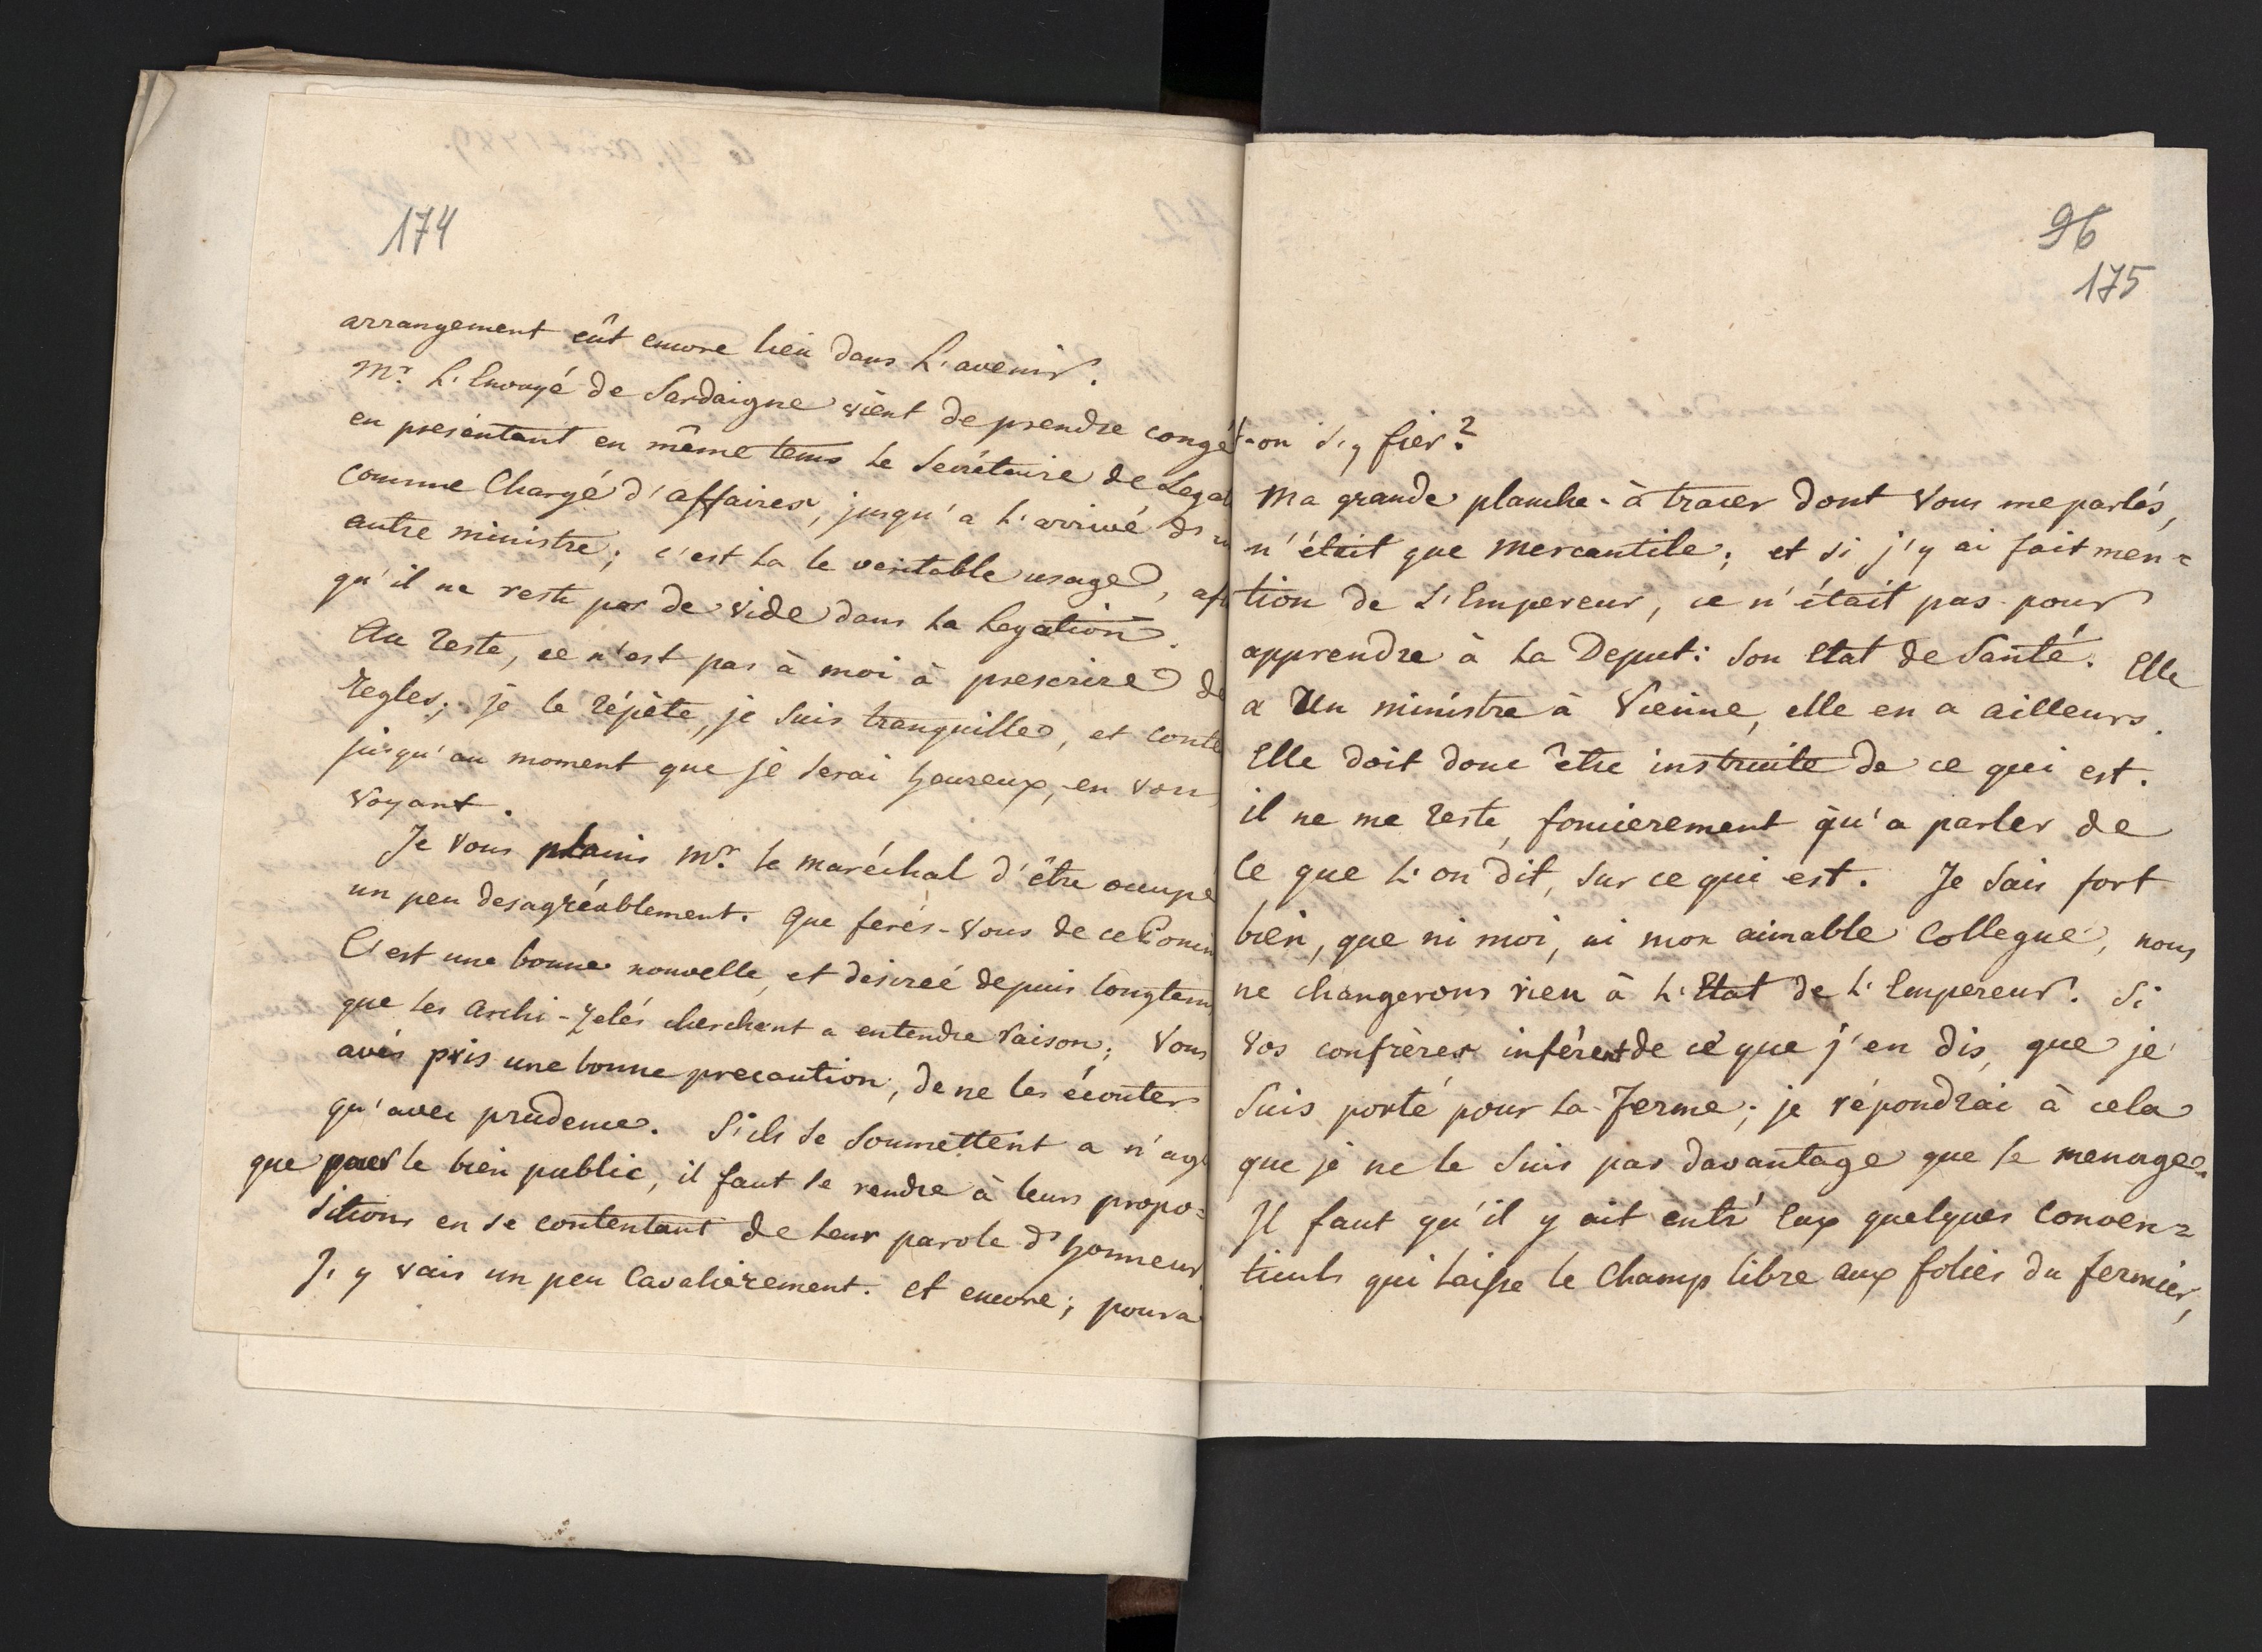 174
arrangement eût encore lieu dans L'avenir.
Mr. L'Envoyé de Sardaigne vient de prendre congé
en presentant en même tems le Secrétaire de Legat
comme Chargé d'affaires, jusqu'a L'arrivé d'
autre ministre; c'est La le veritable usage, afi
qu'il ne reste pas de vide dans La Legation.
Au reste, ce n'est pas à moi à prescrire de
regles; je le répète, je suis tranquille, et conte
jusqu'au moment que je serai heureux, en vous
voyant.
Je vous plains Mr. le maréchal d'être occupé
un peu desagréablement. Que ferés-vous de ce
C'est une bonne nouvelle, et desireé depuis longtems
que les archi-zelés cherchent a entendre raison; Vous
avés pris une bonne precaution, de ne les écouter
qu'avec prudence. S'ils se soumettent a n'agi
que pour le bien public, il faut se rendre à leurs propo=
sitions en se contentant de leur parole d'honneur
J'y vais un peu Cavalièrement. et encore; poura
96
175
t-on s'y fier?
Ma grande planche-à tracer dont vous me parlés,
n'était que mercantile; et si j'y ai fait men=
tion de L'Empereur, ce n'était pas pour
apprendre à La Deput: son Etat de Santé. Elle
a Un ministre à Vienne, elle en a ailleurs.
Elle doit donc être instruite de ce qui est.
il ne me reste, foncierement qu'a parler de
ce que L'on dit, sur ce qui est. Je sais fort
bien, que ni moi, ni mon aimable Collegue, nous
ne changerons rien à L'Etat de L'Empereur. Si
vos confrères inférent de ce que j'en dis, que je
suis porté pour La-ferme; je répondrai à cela
que je ne le suis pas davantage que le menage.
Il faut qu'il y ait entr'eux quelques Conven=
ticuls qui laisse le Champ libre aux folies du fermier,